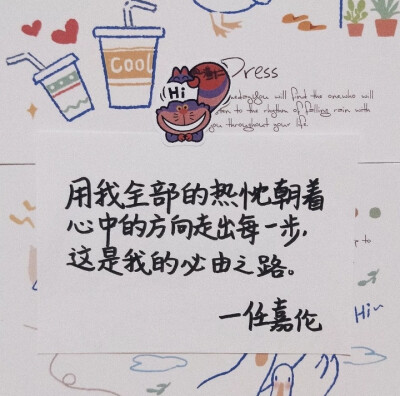 COOL
Hi
Dress
you will find the one who will
to the rhythm of falling rain with
you throughout your life.
用我全部的热忱朝着
心中的方向走出每一步，
这是我的必由之路。
一任嘉伦
to
Hi